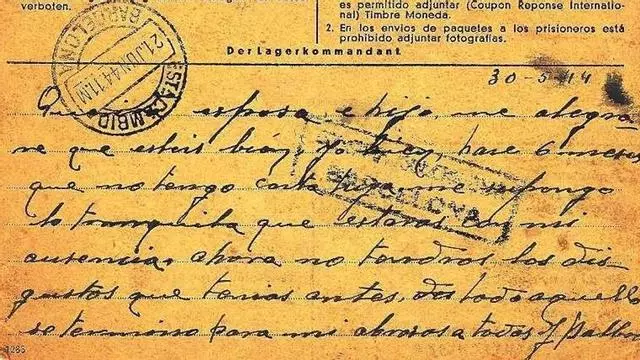 verboten.
es permitido adjuntar (Coupon Reponse Internatio-
nal) Timbre Moneda.
2. En los envios de paquetes a los prisioneros está
prohibido adjuntar fotografías.
Der Lagerkommandant
BARCELONA
21 JUN 44 11 M
ESTAF. CAMBIO
30-5-44
esposa e hijo, me alegra-
re que esteis bien yo bien, hace 6 meses
que no tengo carta tuya, me supongo
lo tranquila que estaras con mi
ausencia, ahora no tendras los dis-
gustos que tenias antes, todo aquello
se termino para mi abrazos a todos
BARCELONA
1285